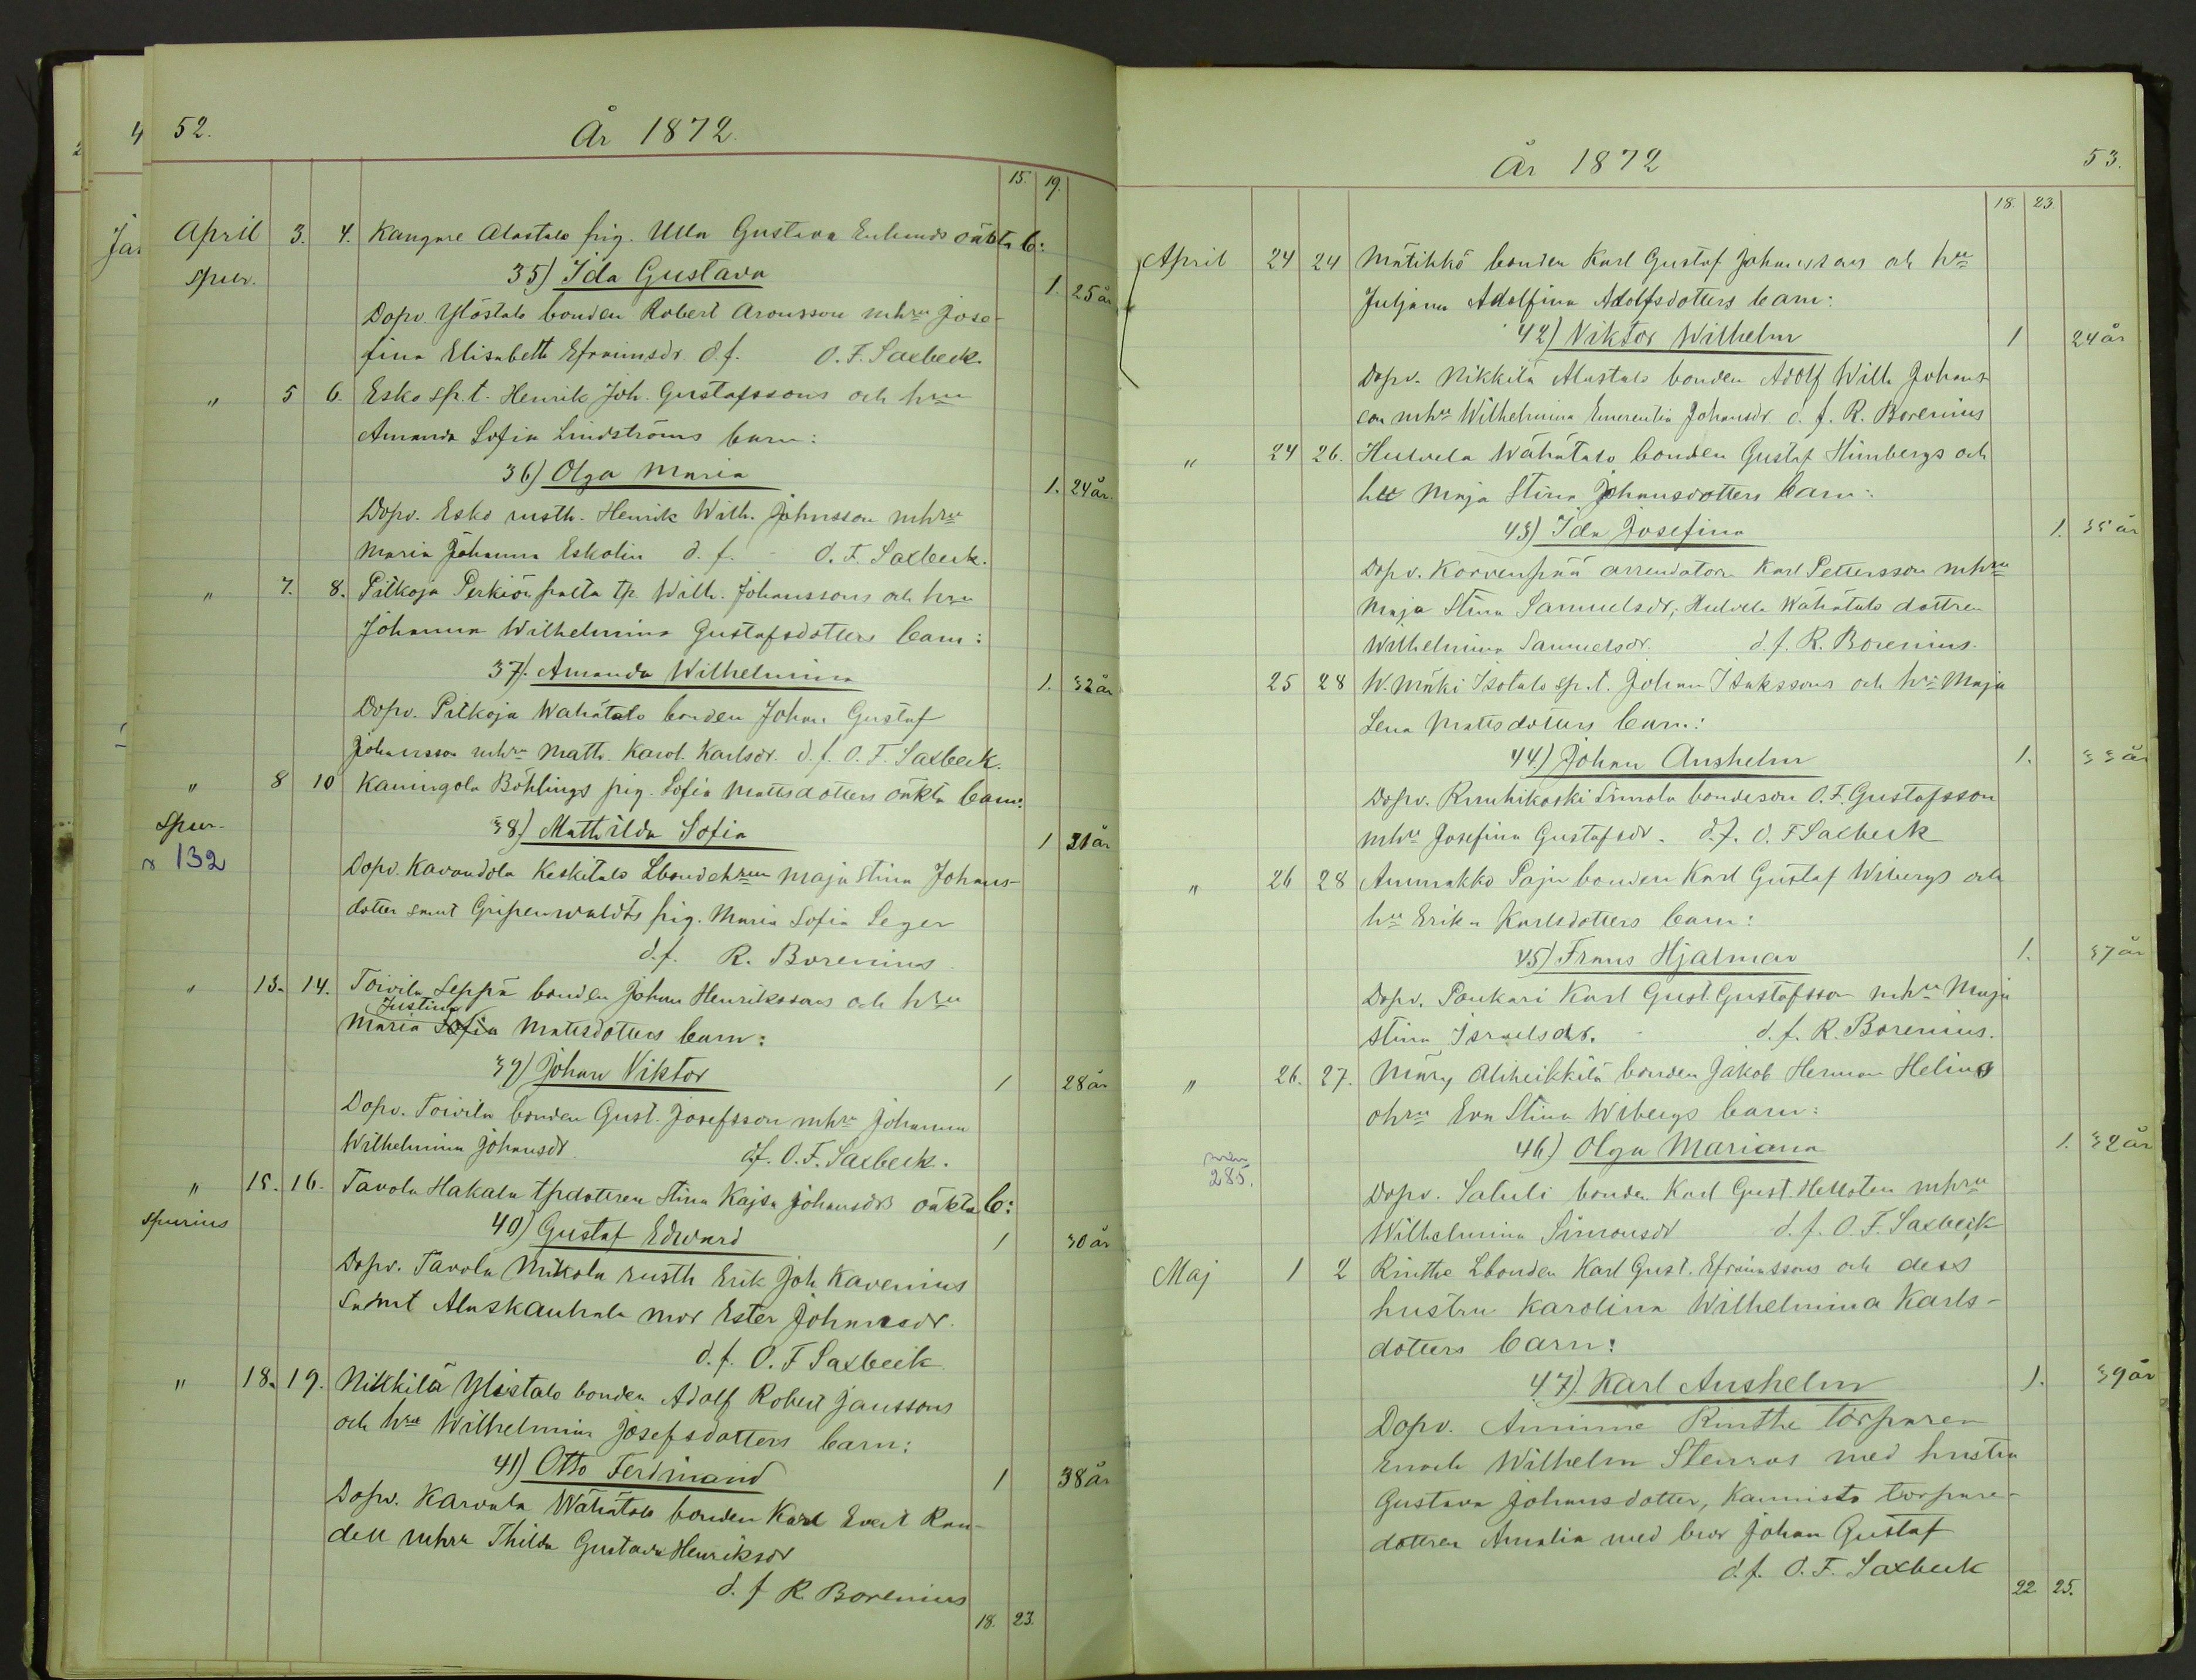 52.
År 1872.
15. 19.
April 3. 4. Kangare Alastalo pig. Ulla Gustava Enlunds oäkta b:
spur.
35) Ida Gustava
1. 25 år
Dopv. Ylöstalo bonden Robert Aronsson mhru Jose-
fina Elisabeth Efraimsdr. d. f. O. F. Saxbeck.
" 5 6. Esko sp. t. Henrik Joh. Gustafssons och hru
Amanda Sofia Lindströms barn:
36) Olga Maria
1. 24 år.
Dopv. Esko rusth. Henrik Wilh. Johnsson mhru
Maria Johanna Eskolin d. f. - O. F. Saxbeck.
" 7. 8. Pitkoja Perkiönpalta tp. Wilh. Johanssons och hru
Johanna Wilhelmina Gustafsdotters barn:
37). Amanda Wilhelmina
1. 32 år
Dopv. Pitkoja Wähätalo bonden Johan Gustaf
Johansson mhru Math. Karol. Karlsdr. d. f. O. F. Saxbeck.
" 8 10 Kaningola Böhlings pig. Sofia Mattsdotters oäkta barn:
Spur.
132
38) Mathilda Sofia
1 31 år
Dopv. Kavandola Keskitalo Lbondehrun Maja Stina Johans-
dotter samt Gripenwaldts pig. Maria Sofia Seger
d. f. R. Borenius
" 13. 14. Toivila Seppä bonden Johan Henrikssons och hru
Justina
Maria Sofia Matsdotters barn:
39) Johan Viktor
1 28 år
Dopv. Toivila bonden Gust. Josefsson mhru Johanna
Wilhelmina Johansdr. d. f. O. F. Saxbeck.
" 15. 16. Tavola Hakala tpdottren Stina Kajsa Johansdrs oäkta b:
Spurius
40) Gustaf Edward
1 30 år
Dopv. Tavola Mikola rusth Erik Joh. Kavenius
samt Alaskauhala mor Ester Johansdr.
d. f. O. F. Saxbeck.
" 18. 19. Nikkilä Ylistalo bonden Adolf Robert Janssons
och hru Wilhelmina Josefsdotters barn:
41) Otto Ferdinand
1 38 år
Dopv. Karvala Wähätalo bonden Karl Evert Ran-
dell mhru Thilda Gustava Henriksdr
d. f R. Borenius
18. 23.
År 1872
53.
18. 23.
April 24 24 Mätikkö bonden Karl Gustaf Johanssons och hru
Juljana Adolfina Adolfsdotters barn:
42) Viktor Wilhelm
1 24 år
Dopv. Nikkilä Alastalo bonden Adolf Wilh. Johans-
son mhru Wilhelmina Emerentia Johansdr. d. f. R. Borenius
" 24 26. Hulvela Wähätalo bonden Gustaf Himbergs och
hu Maja Stina Johansdotters barn:
43) Ida Josefina
1. 35 år
Dopv. Korvenpää arrendatorn Karl Pettersson mhru
Maja Stina Samuelsdr, Hulvela Wähätalo dottren
Wilhelmina Samuelsdr. d. f. R. Borenius.
25 28 W. Mäki Isotalo sp. t. Johan Isakssons och hru Maja
Lena Mattsdotters barn:
44.) Johan Anshelm
1. 33 år
Dopv. Ruuhikoski Simola bondeson O. F. Gustafsson
mhru Josefina Gustafsdr. d. f. O. F. Saxbeck
" 26 28 Ammakko Paju bonden Karl Gustaf Wibergs och
hru Erika Karlsdotters barn:
45) Frans Hjalmar
1. 37 år
Dopv. Poukari Karl Gust. Gustafsson mhru Maja
Stina Israelsdr. - d. f. R. Borenius.
" 26. 27. Märy Aliheikkilä bonden Jakob Herman Helins
ohru Eva Stina Wibergs barn:
46.) Olga Mariana
1. 32 år
285.
Dopv. Satuli bonden Karl Gust. Hellsten mhru
Wilhelmina Simonsdr d. f. O. F. Saxbeck
Maj 1 2 Rinthe Lbonden Karl Gust. Efraimssons och dess
hustru Karolina Wilhelmina Karls-
dotters barn:
47). Karl Anshelm
1. 39 år
Dopv. Aminne Rinthe torparen
Enoch Wilhelm Stenroos med hustru
Gustava Johansdotter, Kaunisto torpare-
dottren Amalia med bror Johan Gustaf
d. f. O. F. Saxbeck
22 25.